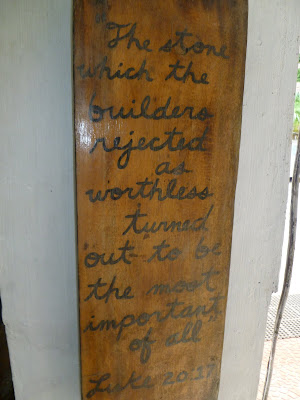 "The stone
which the
builders
rejected
as
worthless
turned
out to be
the most
important
of all"
Luke 20:17